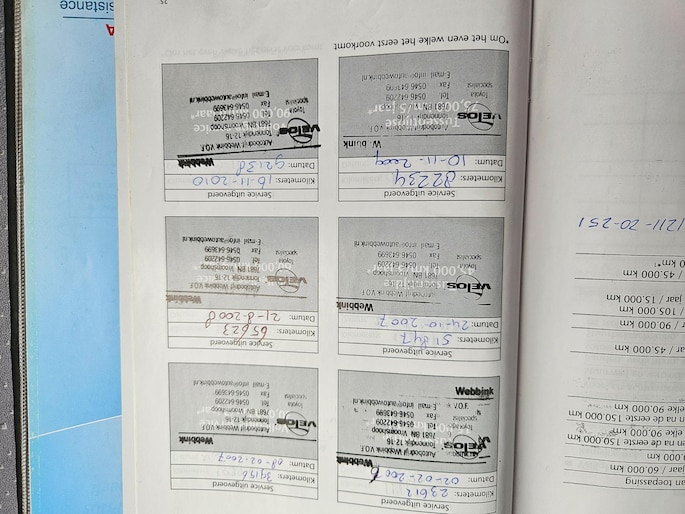 an toepassing
jaar / 60.000 km
en na de eerste 150.000 km
elke 90.000 km
en na de eerste 150.000 km
elke 90.000 km
45.000 km
90.000 km
105.000 km
jaar 15.000 km
45.000 km
0 km*
211-20-251
Service uitgevoerd
Kilometers: 23612
Datum: 02-02-2006
Webbink
Autobedrijf Webbink V.O.F.
Tonnendijk 12-16
7681 BN Vroomshoop
Tel. 0546-642209
Fax 0546-643699
E-mail info@autowebbink.nl
V.O.F.
Webbink
Service uitgevoerd
Kilometers: 34156
Datum: 08-02-2007
Webbink
Autobedrijf Webbink V.O.F.
Tonnendijk 12-16
VEIOS 7681 BN Vroomshoop
Toyota Tel. 0546-642209
specialist Fax 0546-643699
E-mail info@autowebbink.nl
Service uitgevoerd
Kilometers: 51847
Datum: 24-10-2007
Webbink
Autobedrijf Webbink V.O.F.
Tonnendijk 12-16
VEIOS 7681 BN Vroomshoop
Toyota Tel. 0546-642209
specialist Fax 0546-643699
E-mail info@autowebbink.nl
Service uitgevoerd
Kilometers: 65623
Datum: 21-8-2008
Webbink
Autobedrijf Webbink V.O.F.
Tonnendijk 12-16
VEIOS 7681 BN Vroomshoop
Toyota Tel. 0546-642209
specialist Fax 0546-643699
E-mail info@autowebbink.nl
Service uitgevoerd
Kilometers: 82234
Datum: 10-11-2009
Autobedrijf Webbink V.O.F.
Tonnendijk 12-16
VEIOS 7681 BN Vroomshoop
Toyota Tel. 0546-642209
specialist Fax 0546-643699
E-mail info@autowebbink.nl
Service uitgevoerd
Kilometers: 16-11-2010
Datum: 92138
Webbink
Autobedrijf Webbink V.O.F.
Tonnendijk 12-16
VEIOS 7681 BN Vroomshoop
Toyota Tel. 0546-642209
specialist Fax 0546-643699
E-mail info@autowebbink.nl
*Om het even welke het eerst voorkomt
25
sistance